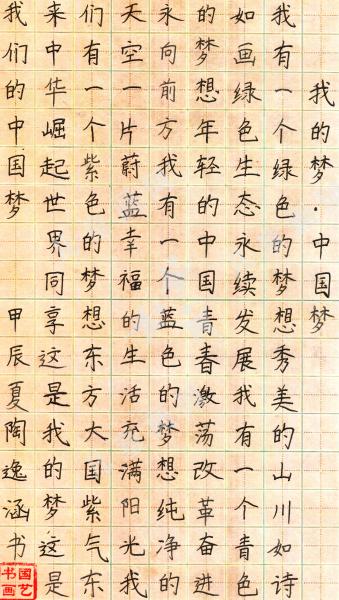 我的梦·中国梦
我有一个绿色的梦想秀美的山川如诗
如画绿色生态永续发展我有一个青色
的梦想年轻的中国青春激荡改革奋进
永向前方我有一个蓝色的梦想纯净的
天空一片蔚蓝幸福的生活充满阳光我
们有一个紫色的梦想东方大国紫气东
来中华崛起世界同享这是我的梦这是
我们的中国梦 甲辰夏陶逸涵书
国艺书画